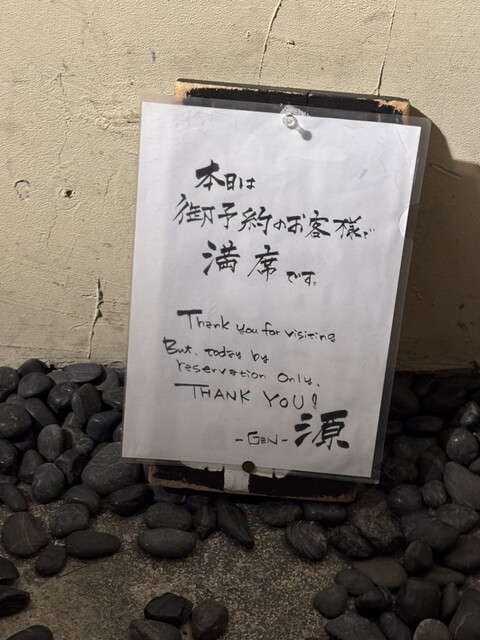 本日は
御予約のお客様で
満席です。
Thank you for visiting
But, today by
reservation Only.
THANK YOU!
-GEN- 源